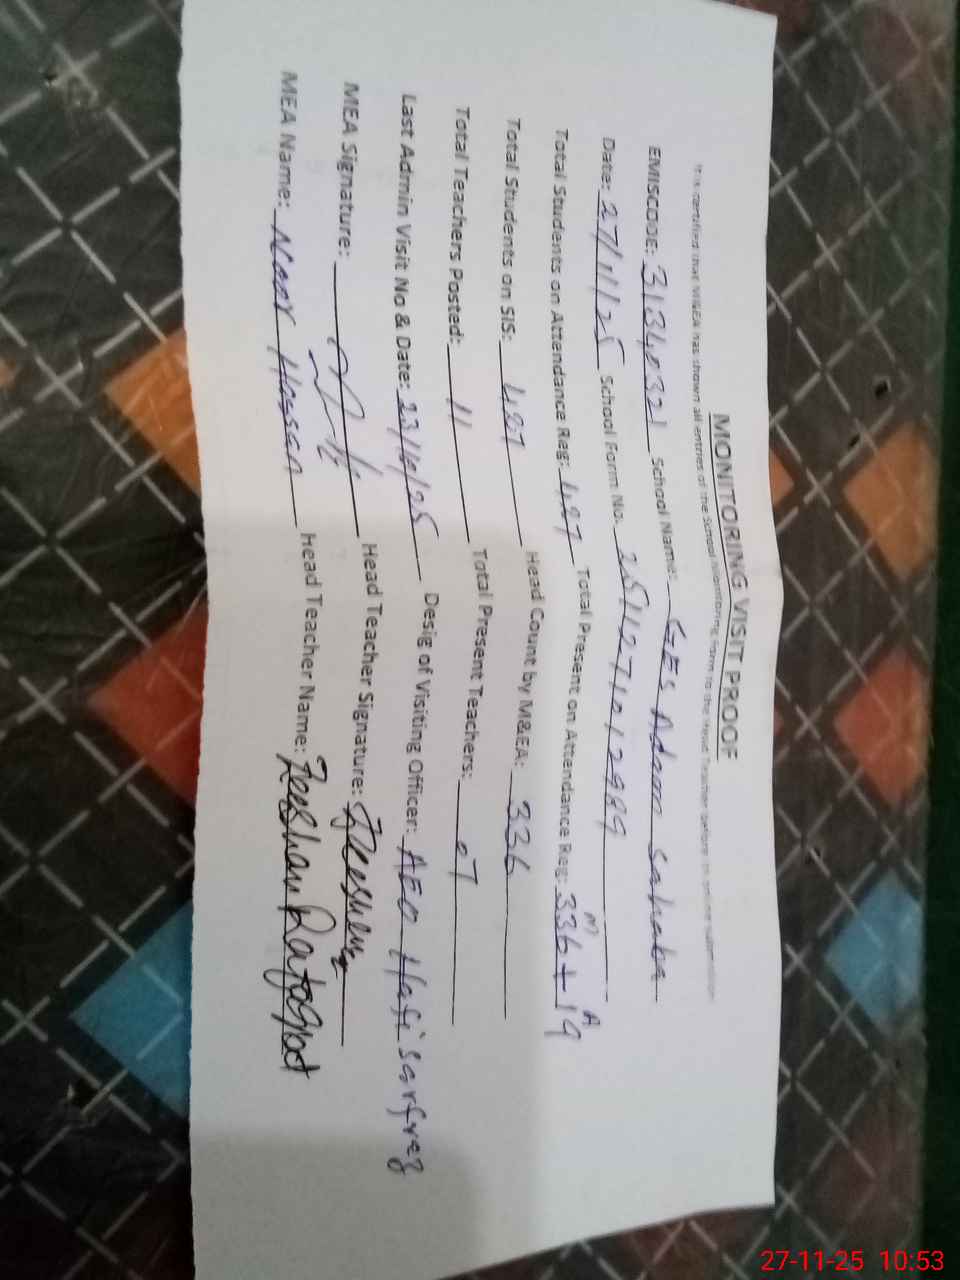 MONITORING VISIT PROOF
It is certified that M&EA has shown all entries of the School monitoring form to the Head Teacher before online submission
EMISCODE: 31340321 School Name: GES Adam Sahaba
Date: 27/11/25 School Form No. 2511271012989
Total Students on Attendance Reg: 487 Total Present on Attendance Reg: 336 M + 19 A
Total Students on SIS: 487 Head Count by M&EA: 336
Total Teachers Posted: 11 Total Present Teachers: 07
Last Admin Visit No & Date: 23/10/25 Desig of Visiting Officer: AEO Hafi sarfraz
MEA Signature: Head Teacher Signature: Zeeshan
MEA Name: Hassan Head Teacher Name: Zeeshan
27-11-25 10:53